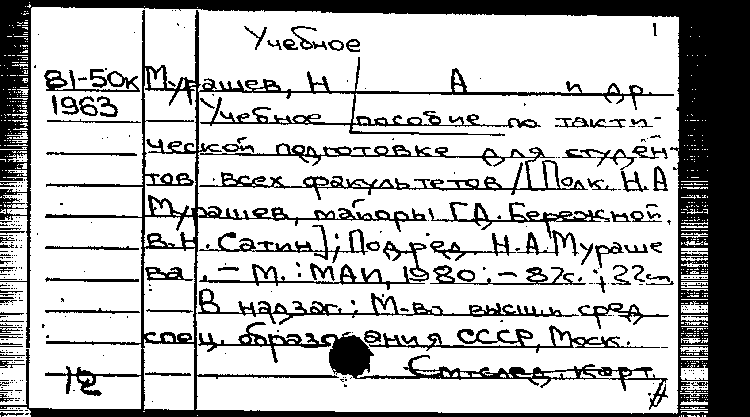 1
Учебное
81-50к Мурашев, Н А и др.
1963 Учебное пособие по такти-
ческой подготовке для студен-
тов всех факультетов / [Полк. Н.А
Мурашев, майоры Г.Д. Бережной,
В.Н. Сатин]; Под ред. Н.А. Мураше
ва. - М. : МАИ, 1980. - 87с. ; 22см.
В надзаг.: М-во высш. и сред
спец. образования СССР, Моск.
См. след. карт.
12